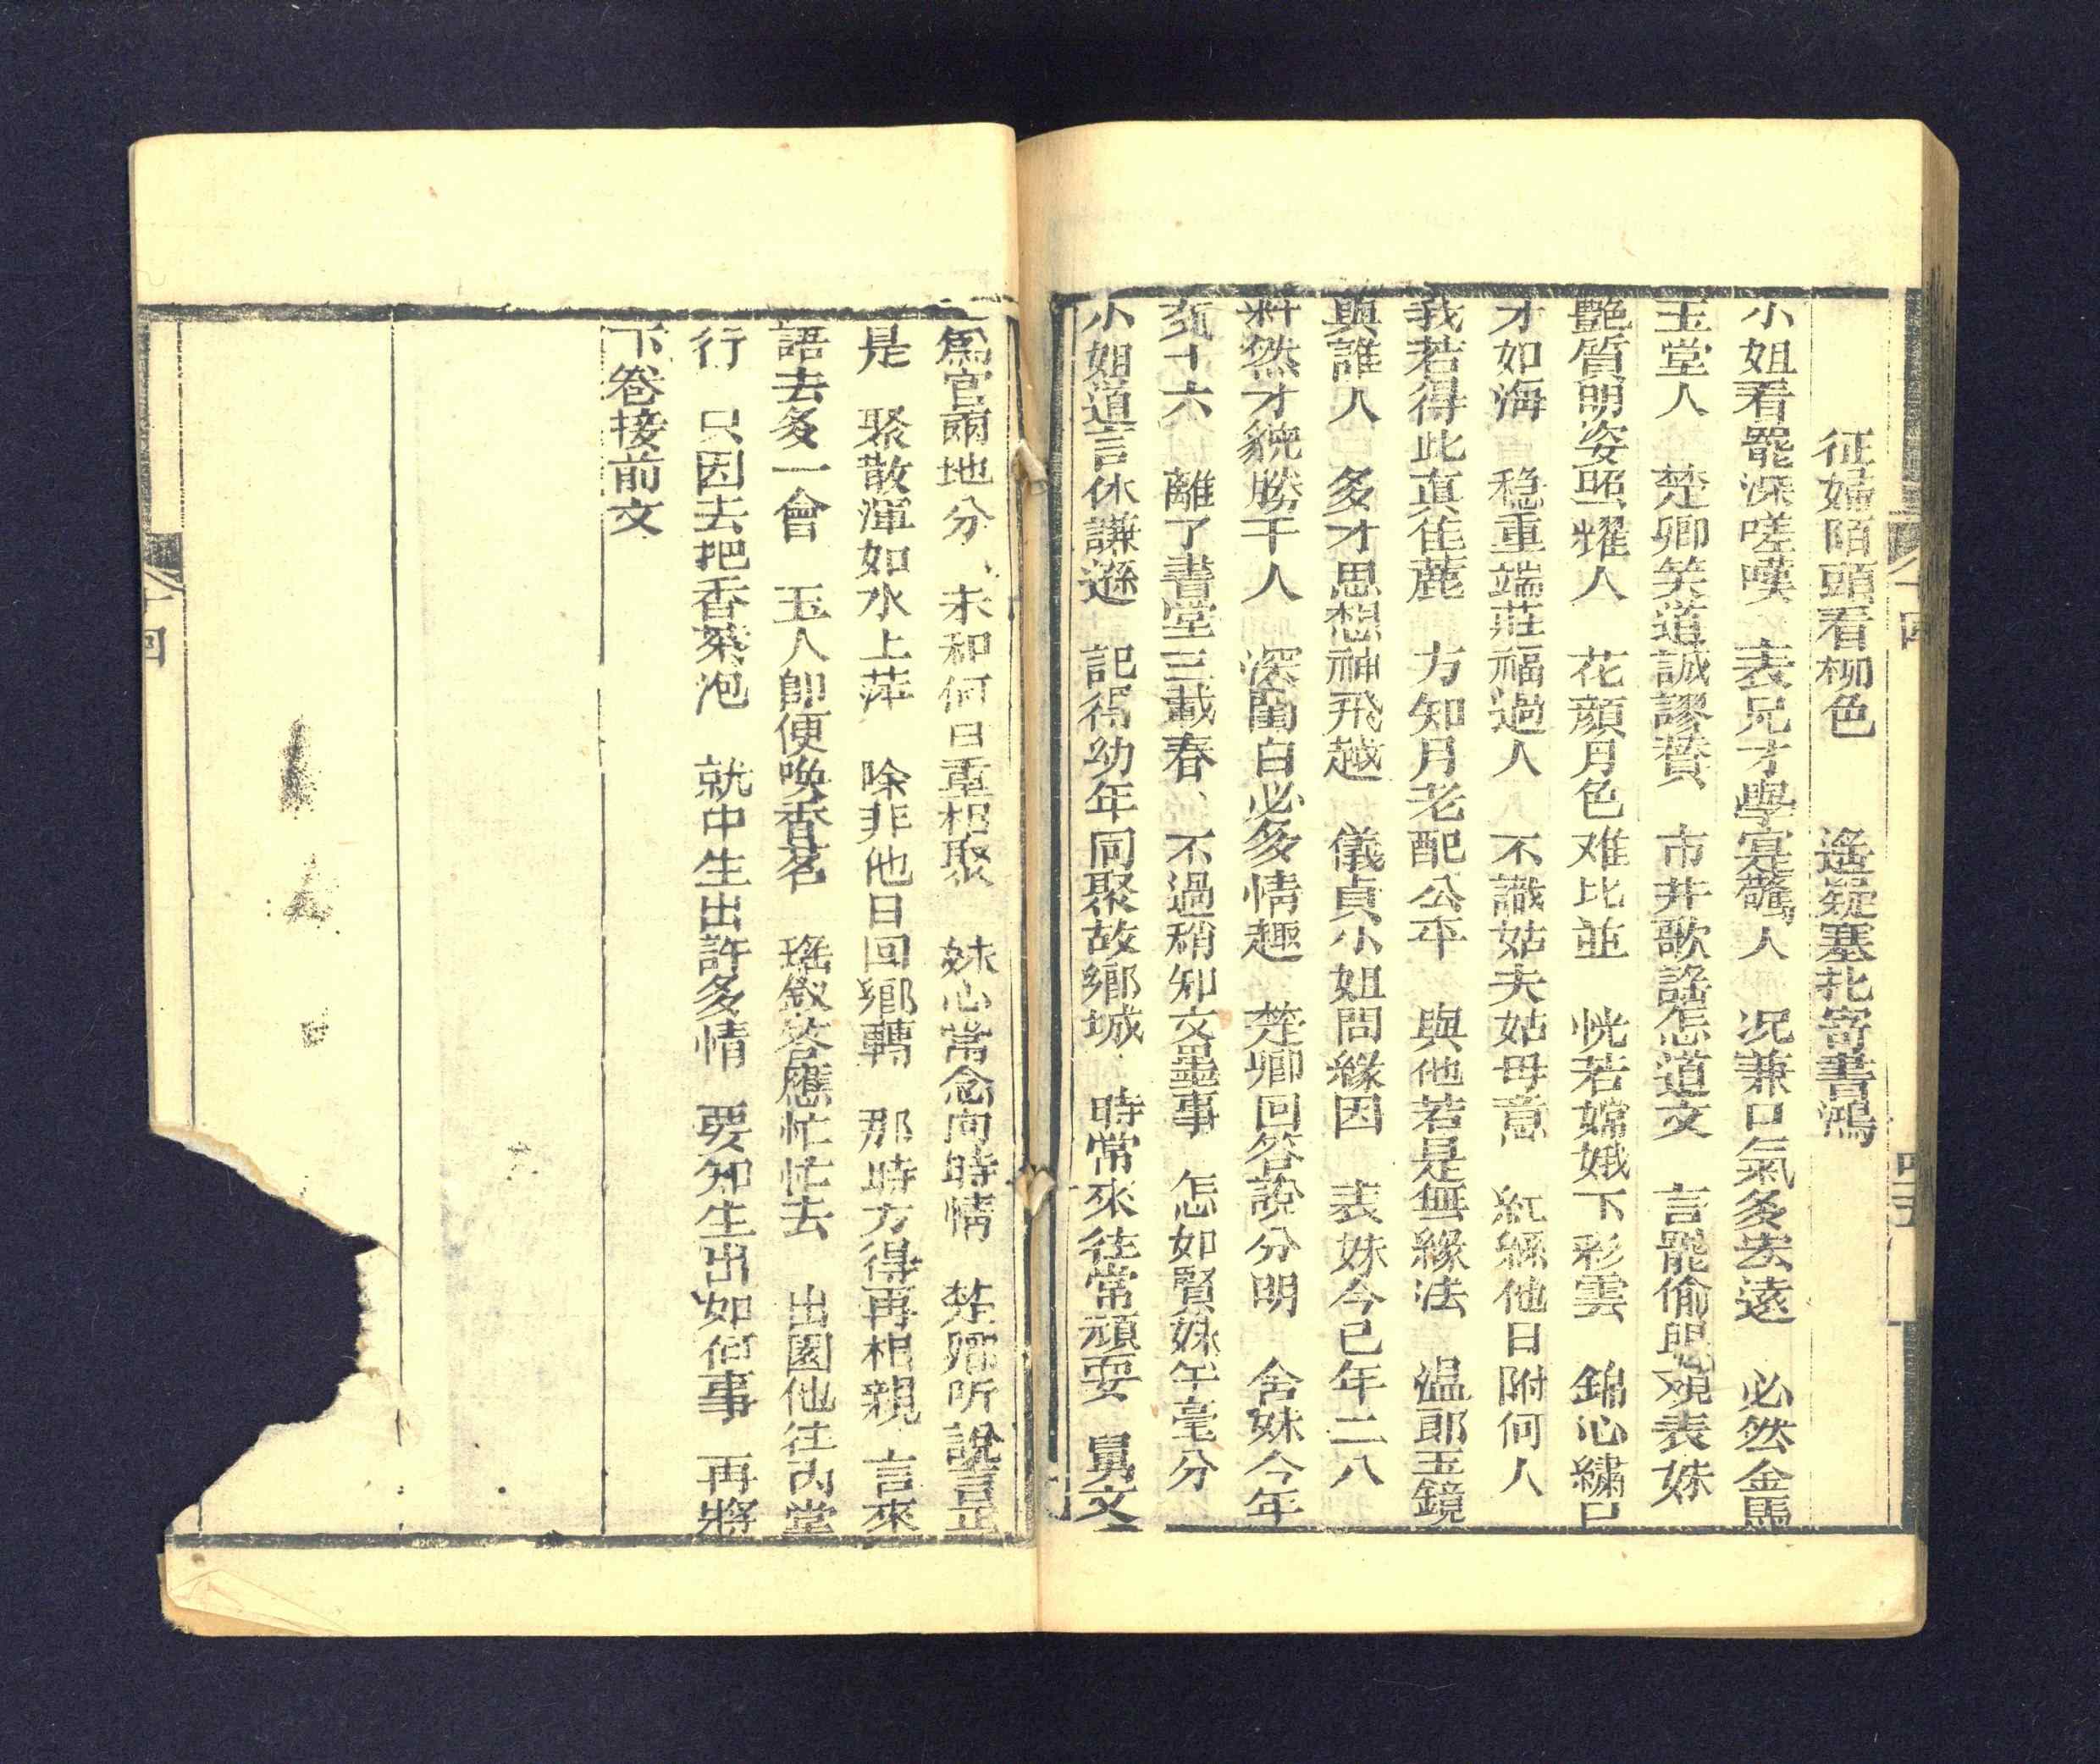 征婦陌頭看柳色　遙疑塞北寄書鴻
小姐看罷深嗟嘆　表兄才學寔驚人　况兼口氣多去遠　必然金馬
玉堂人　楚卿笑道誠謬賛　市井歌謠怎道文　言罷偷眼观表妹
艷質明姿照耀人　花顔月色难比並　恍若嫦娥下彩雲　錦心繡口
才如海　稳重端莊福過人　不識姑夫姑母意　紅絲他日附何人
我若得此真佳麗　方知月老配公平　與他若是無緣法　温郎玉鏡
與誰人　多才思想神飛越　儀貞小姐問緣因　表妹今已年二八
料然才貌勝千人　深閨白必多情趣　楚卿回答說分明　舍妹今年
交十六　離了書堂三載春、不過稍知文墨事　怎如賢妹半毫分
小姐道言休謙遜　記得幼年同聚故鄉城　時常來往常頑耍　舅父
為官兩地分、未知何日重相聚　妹心常念向時情　楚卿听說言正
是　聚散渾如水上萍　除非他日回鄉轉　那時方得再相親　言來
語去多一會　玉人即便喚香茗　瑤釵答應忙忙去　出園他往内堂
行　只因去把香茶泡　就中生出許多情　要知生出如何事　再將
下卷接前文
十四
四五
十四